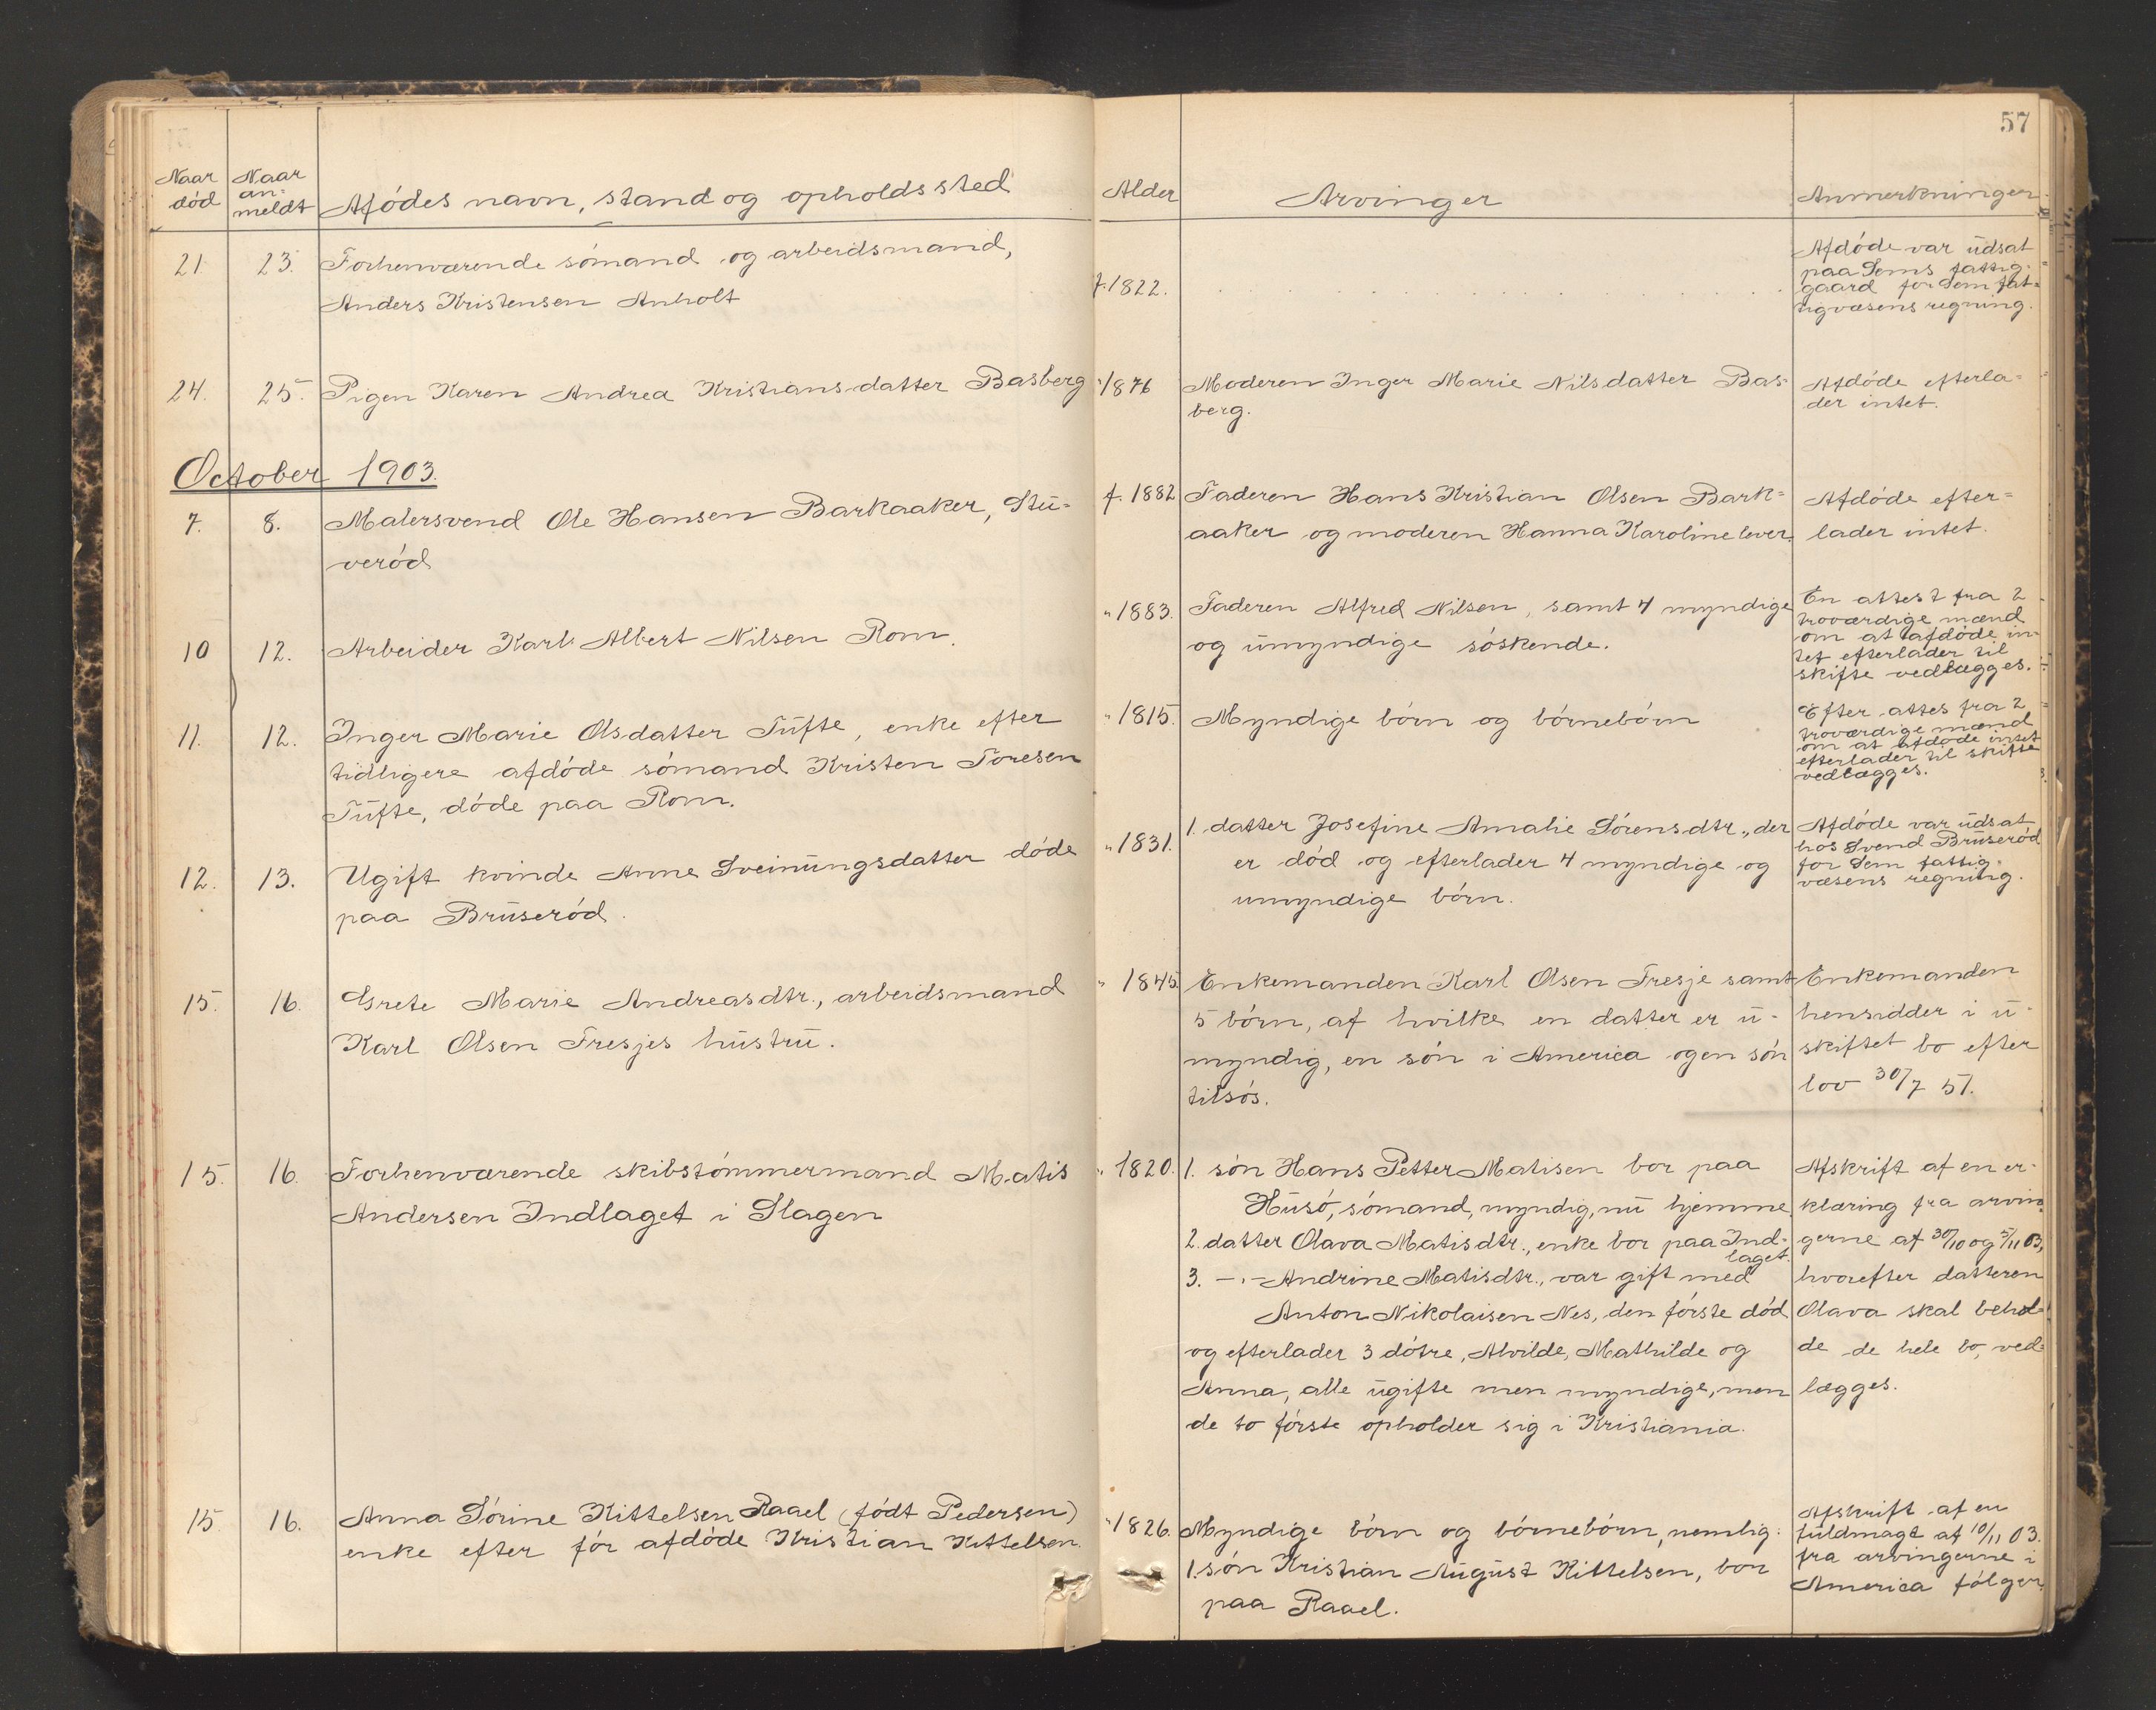 57
Naar død
Naar an=
meldt
Afdødes navn, stand og opholdssted
Alder
Arvinger
Anmerkninger.
21. 23. Forhenværende sømand og arbeidsmand,
Anders Kristensen Anholt
f. 1822.
Afdøde var udsat
paa Sems fattig-
gaard for Sem fat=
tigvæsens regning.
24. 25. Pigen Karen Andrea Kristiansdatter Basberg
" 1876
Moderen Inger Marie Nilsdatter Bas-
berg.
Afdøde efterla=
der intet.
October 1903.
7. 8. Malersvend Ole Hansen Barkaaker, Stu=
verød
f. 1882
Faderen Hans Kristian Olsen Bark=
aaker og moderen Hanna Karoline lever.
Afdøde efter=
lader intet.
10 12. Arbeider Karl Albert Nilsen Rom.
" 1883.
Faderen Alfred Nilsen, samt 4 myndige
og umyndige søskende.
En attest fra 2
troværdige mænd
om at afdøde in-
tet efterlader til
skifte vedlægges.
11. 12. Inger Marie Olsdatter Tufte, enke efter
tidligere afdøde sømand Kristen Toresen
Tufte, døde paa Rom.
" 1815.
Myndige børn og børnebørn
Efter attes fra 2
troværdige mænd
om at afdøde intet
efterlader til skifte
vedlægges.
12. 13. Ugift kvinde Anne Sveinungsdatter døde
paa Bruserød.
" 1831.
1. datter Josefine Amalie Sørensdtr., der
er død og efterlader 4 myndige og
umyndige børn.
Afdøde var udsat
hos Svend Bruserød
for Sem fattig-
væsens regning.
15. 16. Grete Marie Andreasdtr., arbeidsmand
Karl Olsen Fresjes hustru.
" 1845.
Enkemanden Karl Olsen Fresje samt
5 børn, af hvilke en datter er u-
myndig, en søn i America og en søn
tilsøs.
Enkemanden
hensidder i u-
skiftet bo efter
lov 30/7 51.
15. 16. Forhenværende skibstømmermand Matis
Andersen Indlaget i Slagen
" 1820.
1. søn Hans Petter Matisen bor paa
Husø, sømand, myndig, nu hjemme
2. datter Olava Matisdtr., enke bor paa Ind-
laget.
3. -"- Andrine Matisdtr., var gift med
Anton Nikolaisen Nes, den første død
og efterlader 3 døtre, Alvilde, Mathilde og
Anna, alle ugifte men myndige, men
de to første opholder sig i Kristiania.
Afskrift af en er-
klæring fra arvin-
gerne af 30/10 og 5/11 03,
hvorefter datteren
Olava skal behol-
de de hele bo, ved-
lægges.
15 16. Anna Sørine Kittelsen Raael (født Pedersen)
enke efter før afdøde Kristian Kittelsen.
" 1826.
Myndige børn og børnebørn, nemlig:
1. søn Kristian August Kittelsen, bor
paa Raael.
Afskrift af en
fuldmagt af 10/11 03.
fra arvingerne i
America følger.